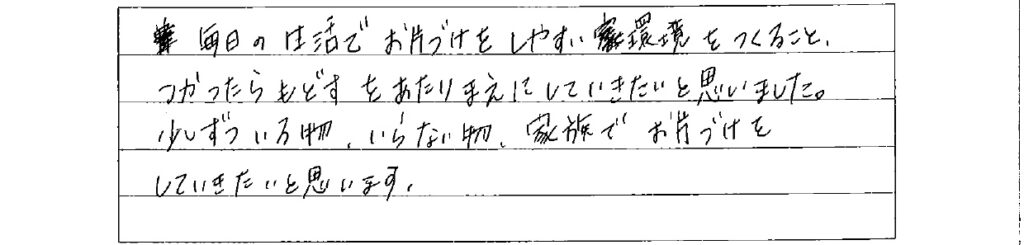 毎日の生活でお片づけをしやすい環境をつくること、
つかったらもどすをあたりまえにしていきたいと思いました。
少しずついる物、いらない物、家族でお片づけを
していきたいと思います。